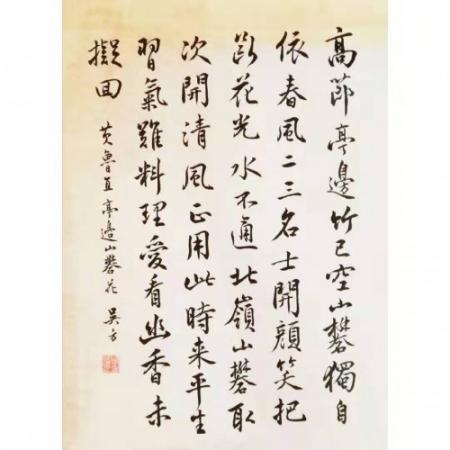 高節亭邊竹已空山礬獨自
依春風二三名士開顏笑把
斷花光水不通北嶺山礬取
次開清風正用此時来平生
習氣難料理愛看幽香未
擬回
黄魯直亭邊山礬花 吴方